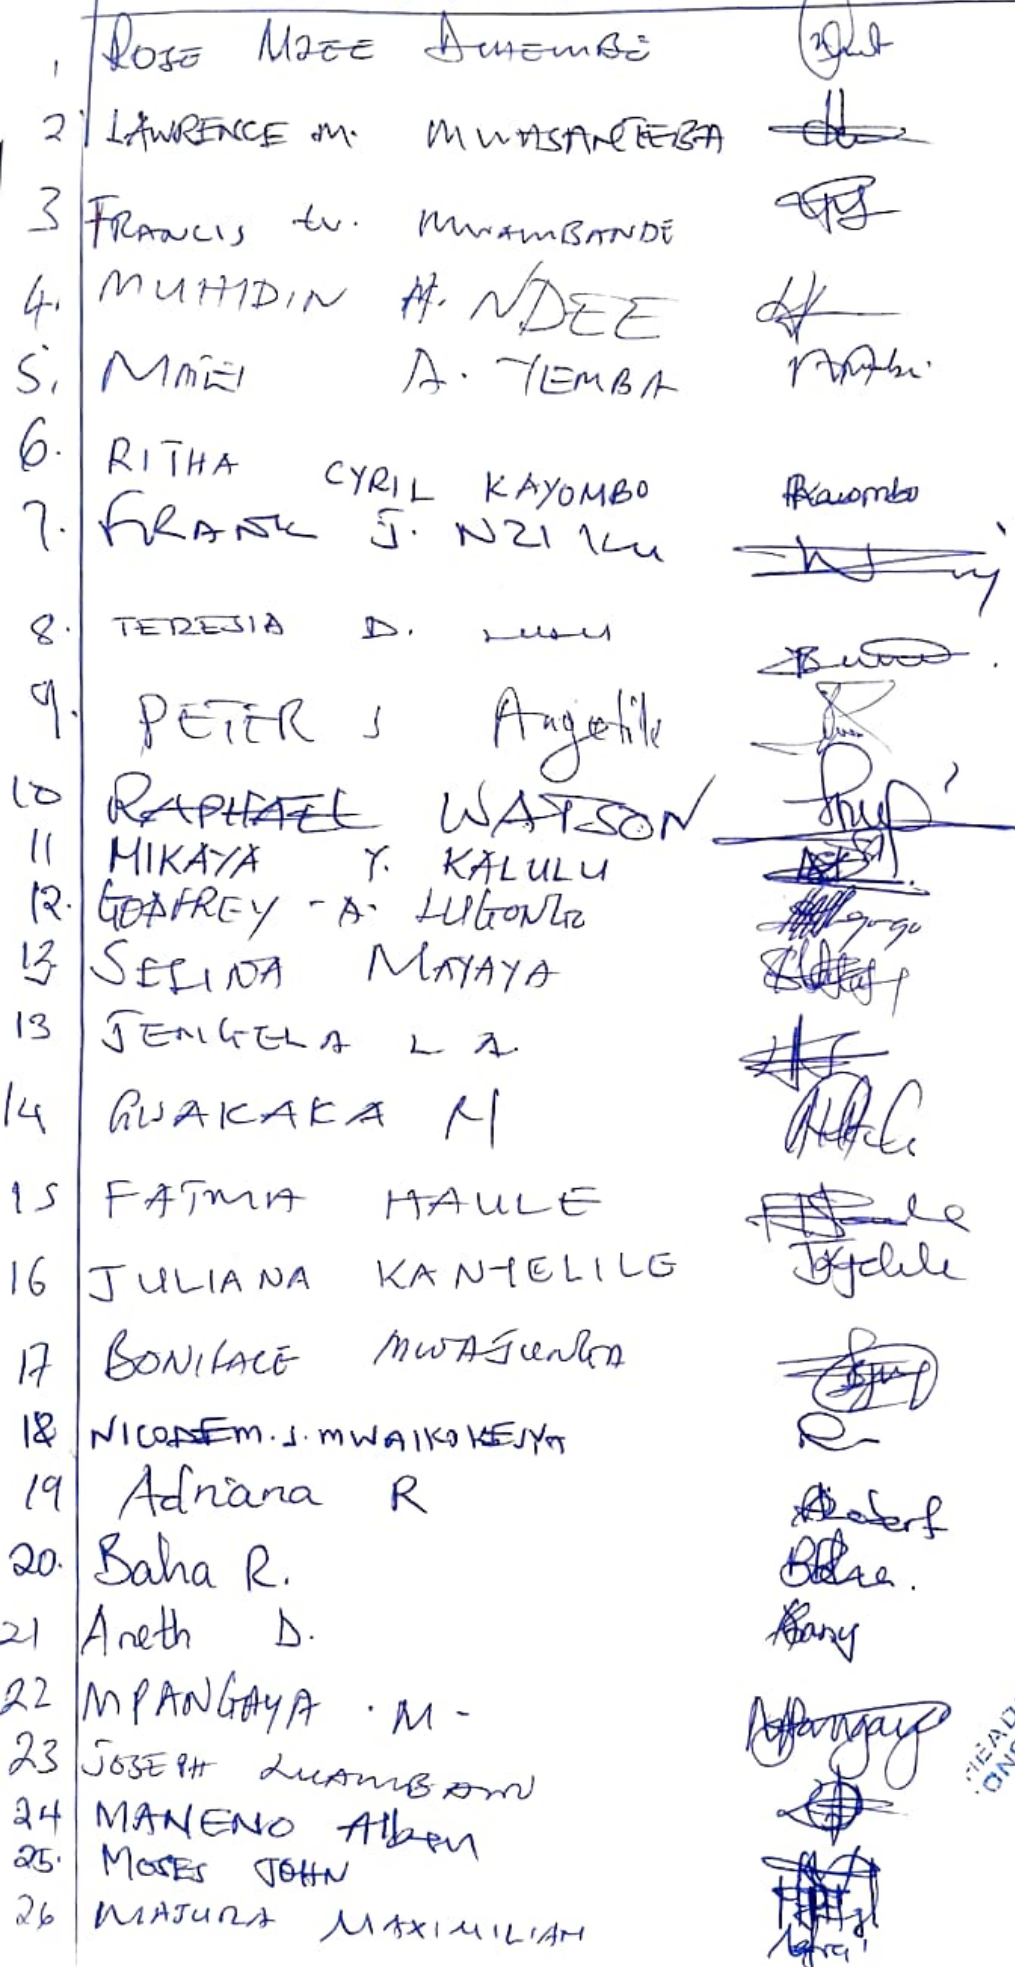 1 ROSE MZEE DUHEMBE
2 LAWRENCE M. MWASANTEBA
3 FRANCIS W. MWAMBANDE
4. MUHIDIN H. NDEE
5. A. YEMBA
6. RITHA CYRIL KAYOMBO Rkayombo
7. FRANK J. NZIKU
8. TERESIA D.
9. PETER J Angetile
10 RAPHAEL WATSON
11 MIKAYA Y. KALULU
12. GODFREY - A.
13 SELINA MAYAYA
13 JENGELA L A.
14 GWAKAKA M
15 FATMA HAULE
16 JULIANA KANYELILE
17 BONIFACE MWAJUNGA
18 NICODEM. S. MWAIKOKESYA
19 Adriana R
20. Baha R.
21 Aneth D.
22 MPANGAYA . M -
23 JOSEPH LUAMBANO
24 MANENO Alben
25. MOSES JOHN
26 MAJURA MAXIMILIAN
HEAD